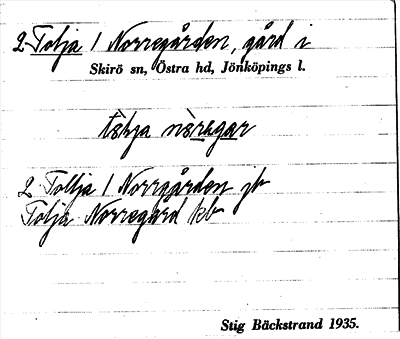 2 Tolja 1 Norregården, gård i
Skirö sn, Östra hd, Jönköpings l.
nòregar
2 Tollja 1 Norrgården jb
Tolja Norregård kb
Stig Bäckstrand 1935.